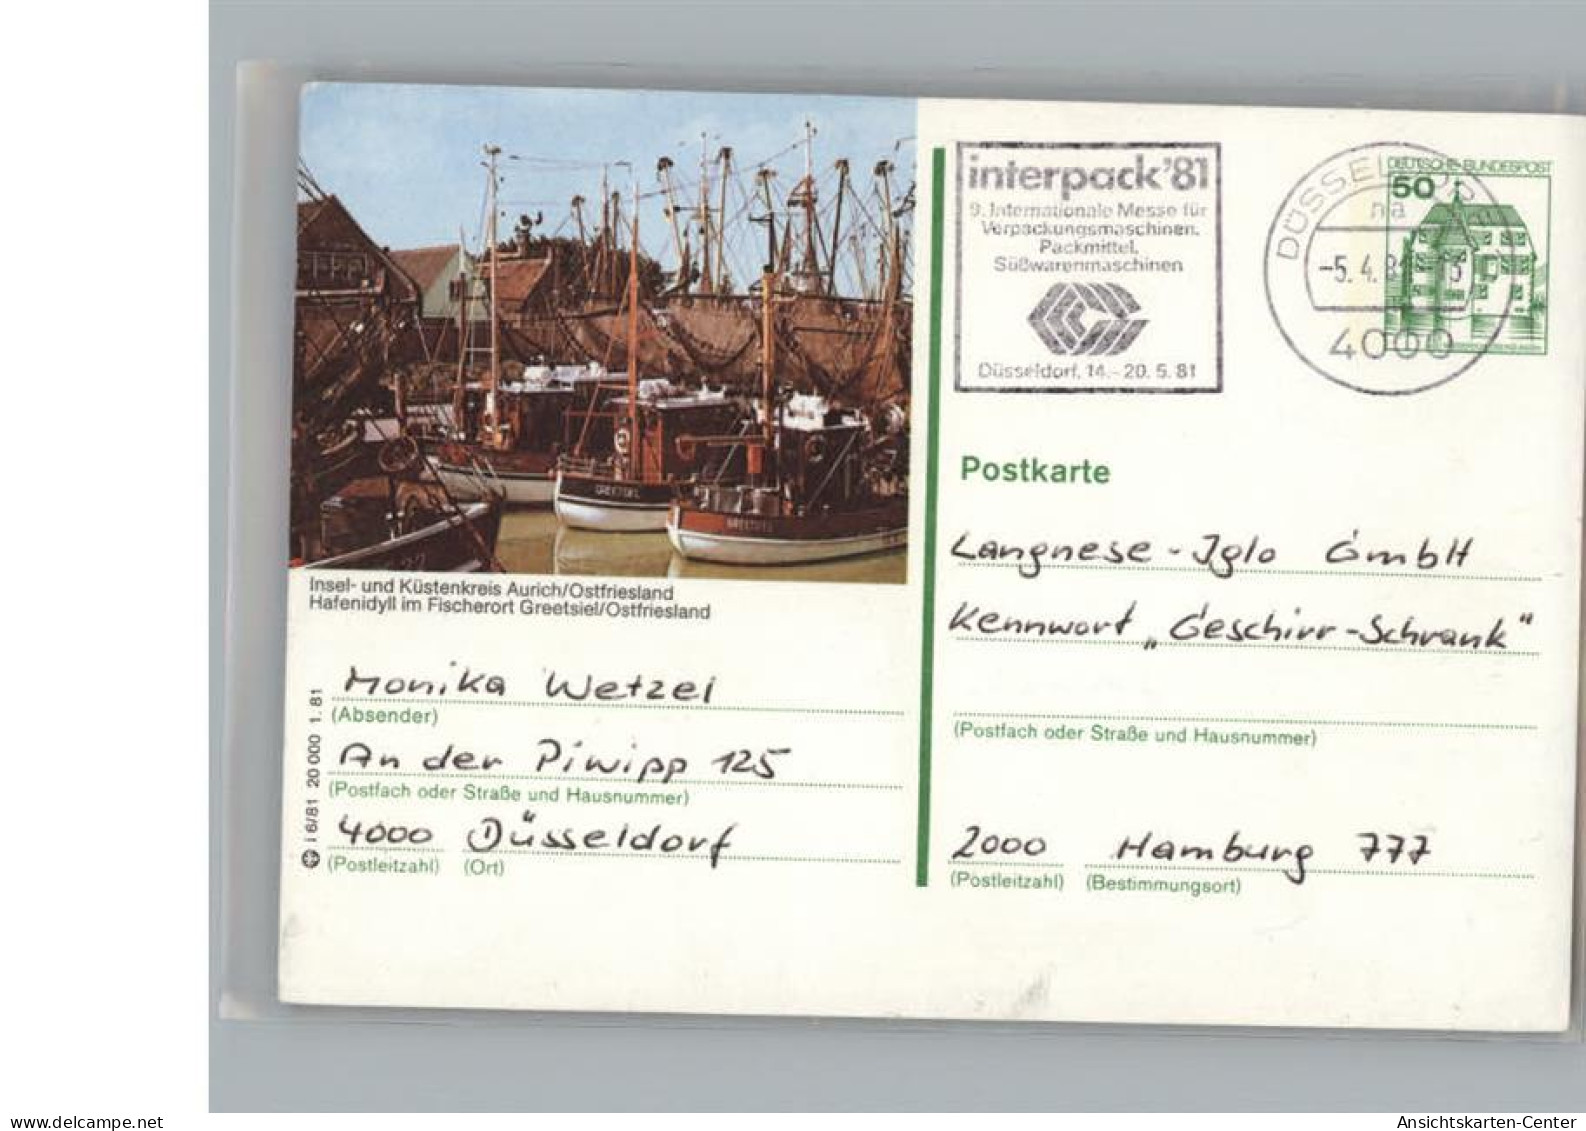 interpack '81
9. Internationale Messe für
Verpackungsmaschinen,
Packmittel,
Süßwarenmaschinen
Düsseldorf, 14.-20.5.81
DÜSSELDORF
na
-5.4.8
4000
DEUTSCHE BUNDESPOST
50
Postkarte
Langnese-Iglo GmbH
Kennwort „Geschirr-Schrank"
(Postfach oder Straße und Hausnummer)
2000 Hamburg 777
(Postleitzahl) (Bestimmungsort)
GREETSIEL
GREETSIEL
Insel- und Küstenkreis Aurich/Ostfriesland
Hafenidyll im Fischerort Greetsiel/Ostfriesland
Monika Wetzel
(Absender)
An der Piwipp 125
(Postfach oder Straße und Hausnummer)
4000 Düsseldorf
(Postleitzahl) (Ort)
i 6/81 20 000 1.81
www.delcampe.net
Ansichtskarten-Center